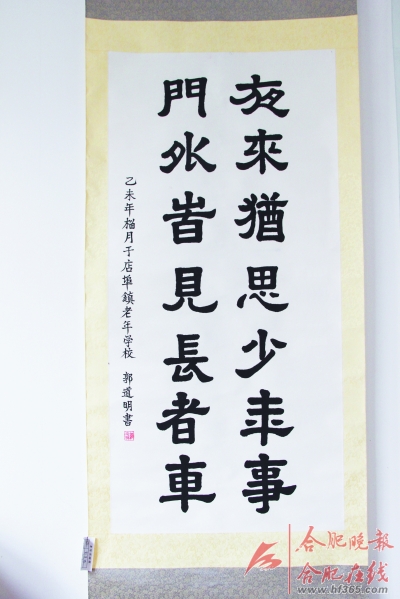 夜來猶思少年事
門外皆見長者車
乙未年榴月于店埠鎮老年学校 郭道明書
合肥晚报
合肥在线
www.hf365.com